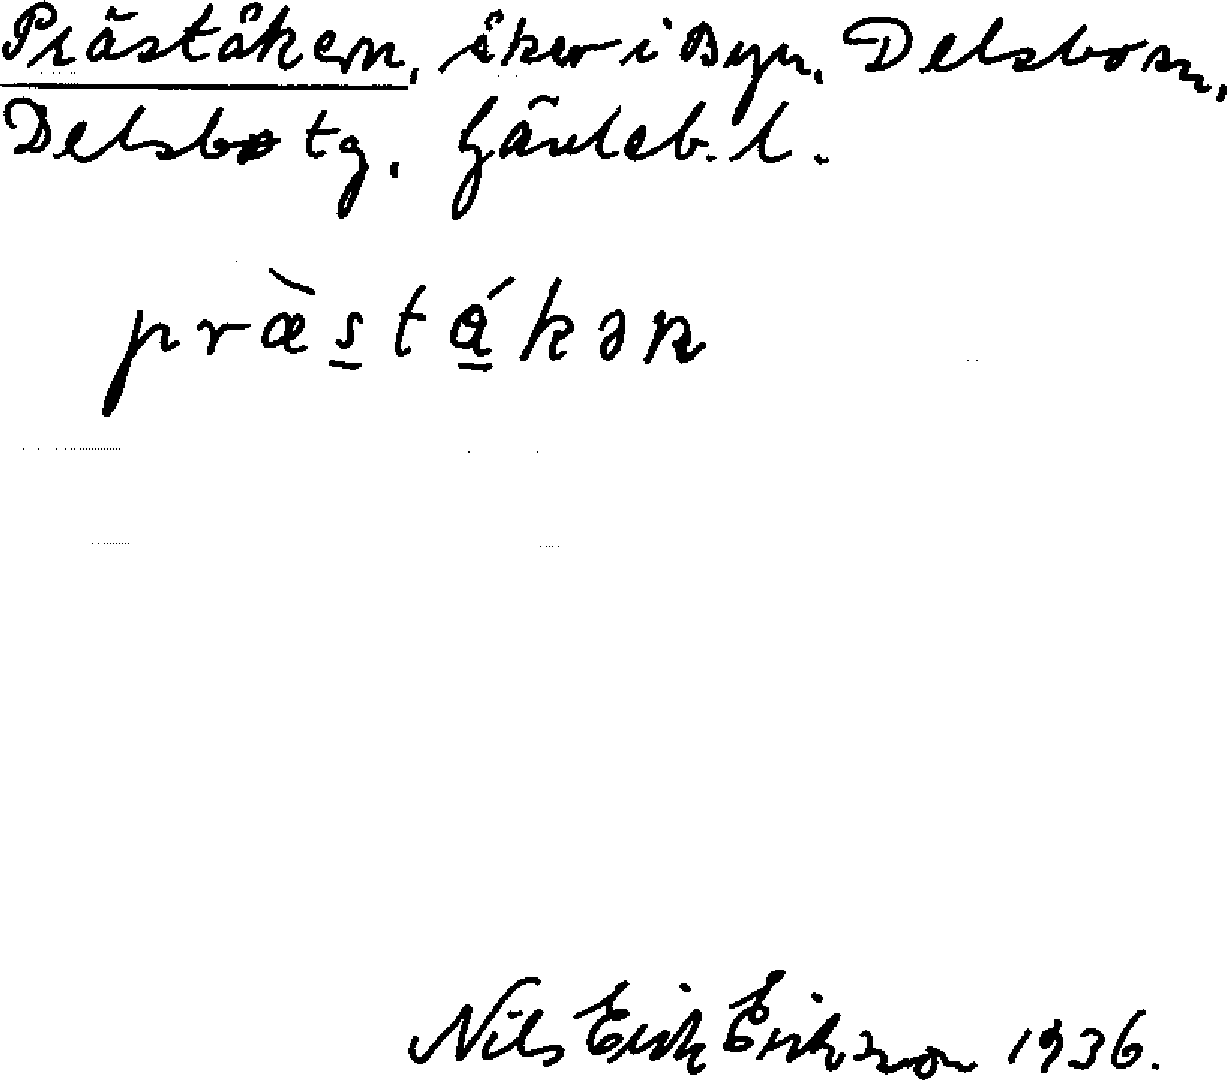 Präståkern, åker i Byn, Delsbo sn,
Delsbo tg, Gävleb. l.
præ̀stákən
Nils Erik Erikzson 1936.